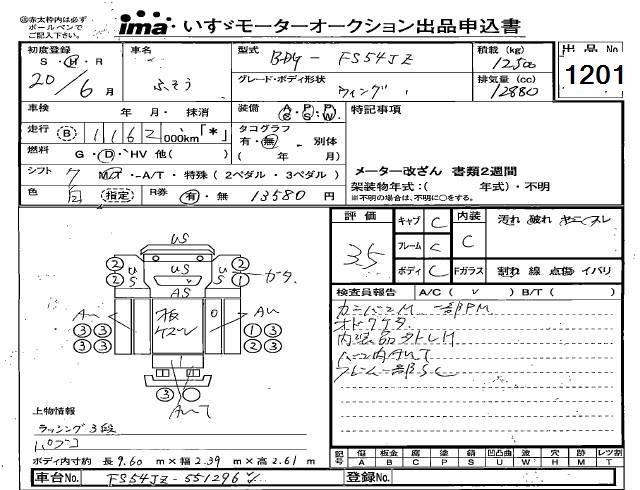 ㊟赤太枠内は必ず
ボールペンで
ご記入下さい。
ima・いすゞモーターオークション出品申込書
初度登録
S・H・R
20年
6月
車名
ふそう
型式
BDG-FS54JZ
積載 (kg)
12500
グレード・ボディ形状
ウィング
排気量 (cc)
12880
出品No
1201
車検
年 月・ 抹消
装備
A/C P/S P/W
特記事項
走行
B
1162,000km「*」
タコグラフ
有・無 別体
( 年 月)
燃料
G・D・HV 他( )
シフト
7 MT・-A/T・特殊(2ペダル・3ペダル)
メーター改ざん 書類2週間
架装物年式:( 年式)・不明
※不明の場合は、不明に○をする。
色
白 指定
R券
有・無 13580円
評価
3.5
キャブ C
フレーム C
ボディ C
内装
C
Fガラス
汚れ 破れ ヤニ スレ
割れ 線 点傷 イバリ
検査員報告
A/C ( ✓ ) B/T ( )
内装品
US
US
AS
US
US
2
2
2
1
ガタ
板
3 3
3 2
1 3
2 2
3
上物情報
ラッシング3段
ボディ内寸約 長 9.60 m×幅 2.39 m×高 2.61 m
記号
傷 A
板金 B
腐 C
塗 P
錆 S
凹凸曲 U
波 W
穴 H
跡 M
レツ割 T
車台No.
FS54JZ-551296
登録No.